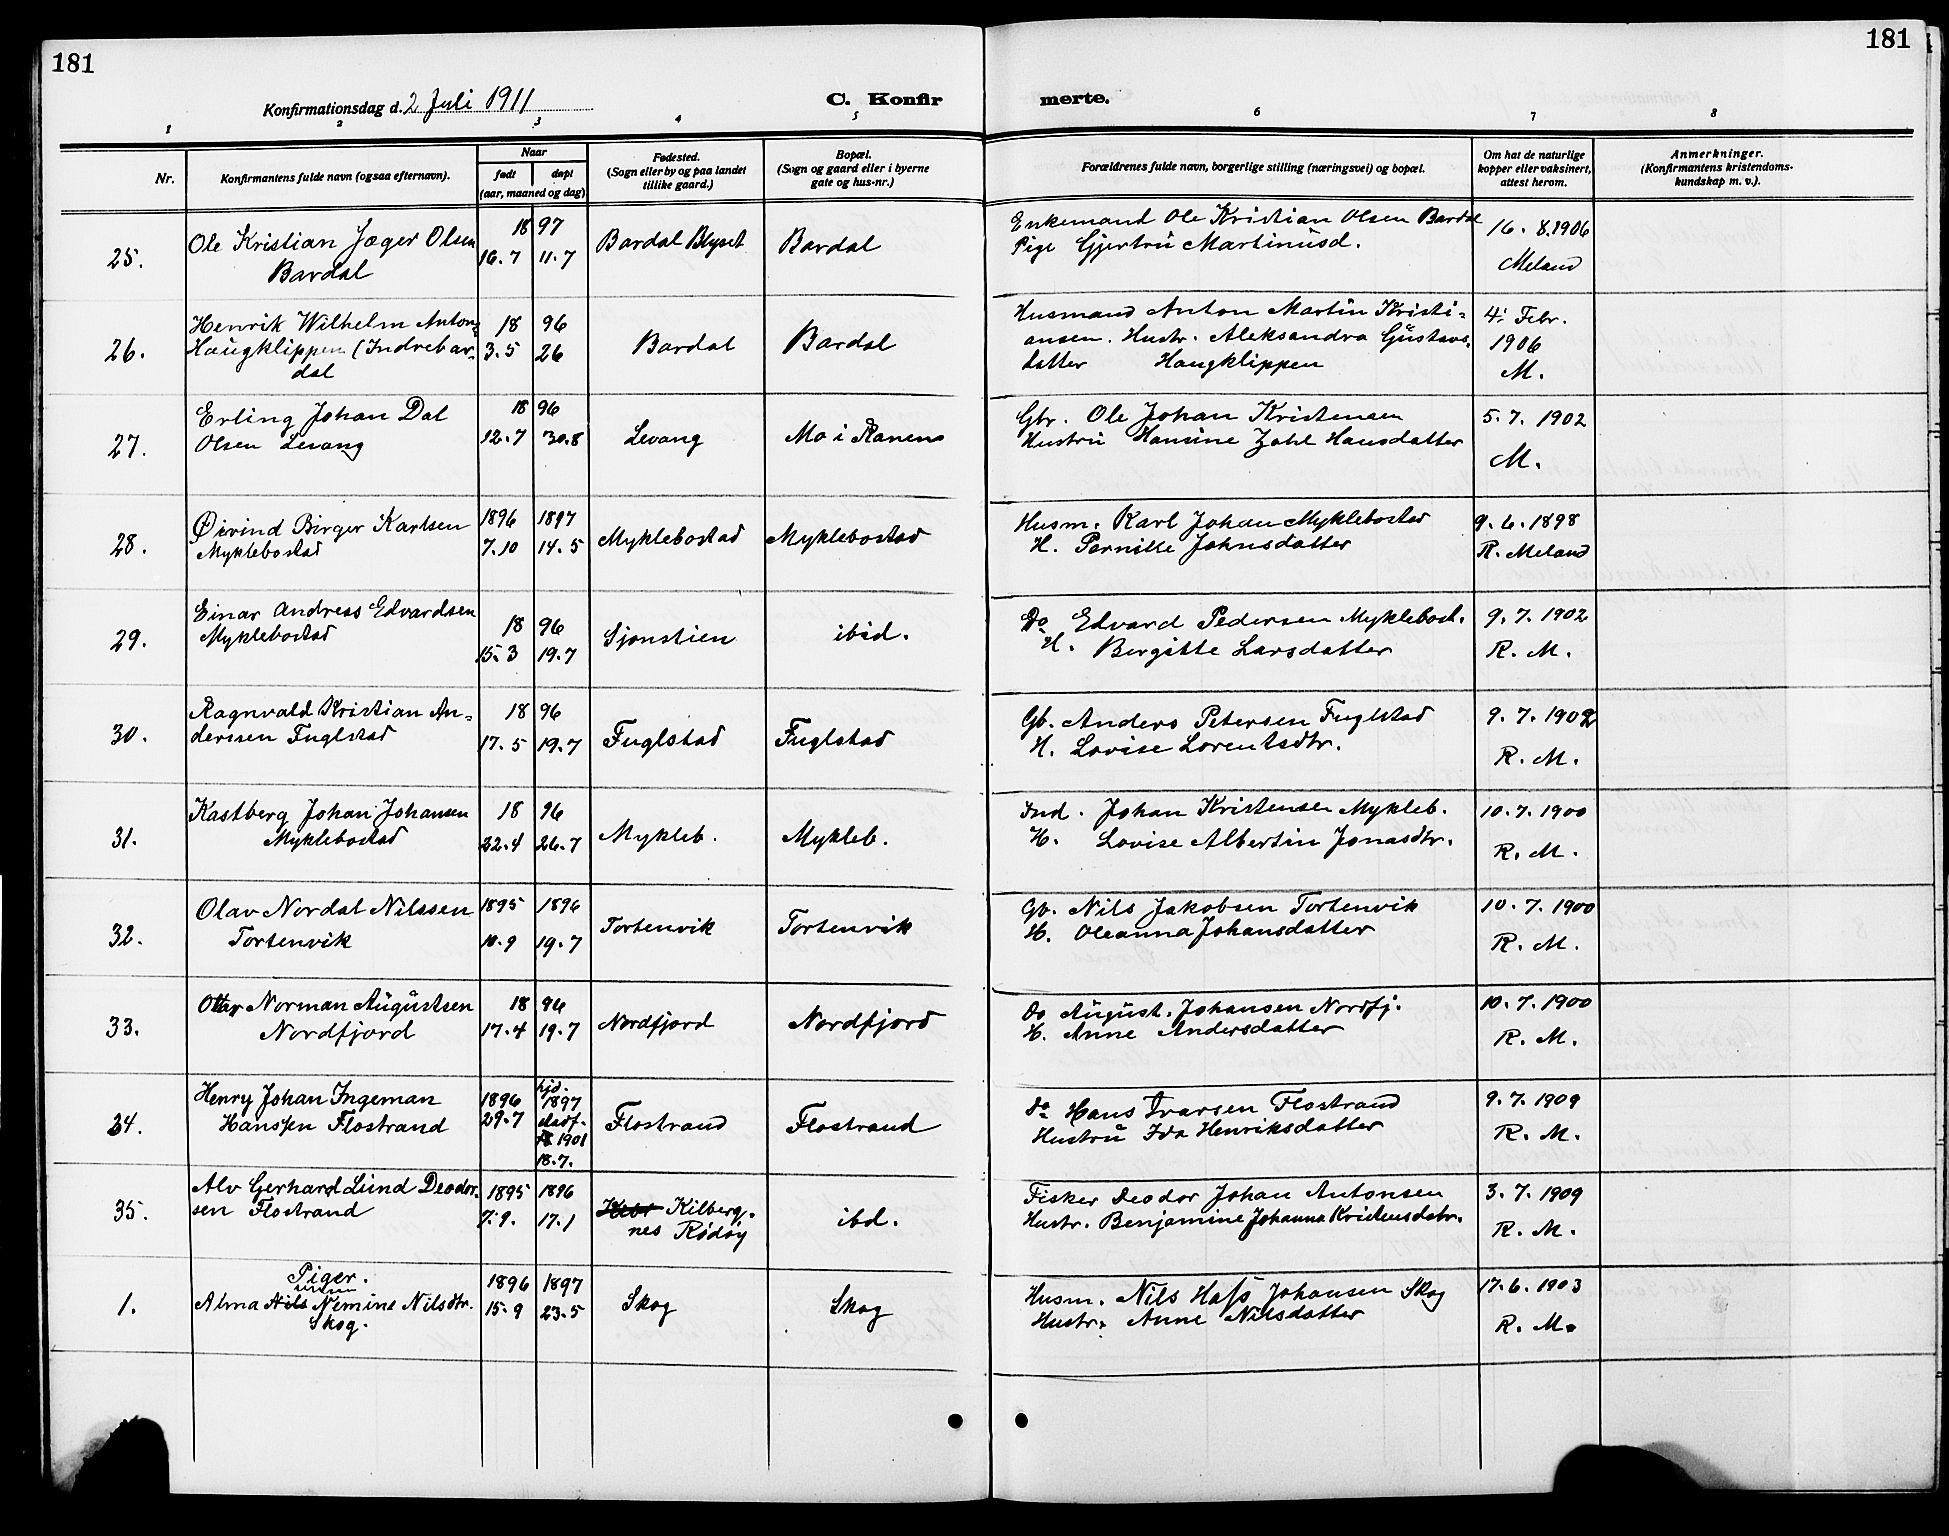 181
181
Konfirmationsdag d. 2 Juli 1911
C. Konfir
merte.
1 2 3 4 5 6 7 8
Nr.
Konfirmantens fulde navn (ogsaa efternavn).
Naar
født
døpt
(aar, maaned og dag)
Fødested.
(Sogn eller by og paa landet
tillike gaard.)
Bopæl.
(Sogn og gaard eller i byerne
gate og hus-nr.)
Forældrenes fulde navn, borgerlige stilling (næringsvei) og bopæl.
Om hat de naturlige
kopper eller vaksinert,
attest herom.
Anmerkninger.
(Konfirmantens kristendoms-
kundskap m. v.).
25.
Ole Kristian Jæger Olsen
Bardal
18 97
16.7 11.7
Bardal Blyset
Bardal
Enkemand Ole Kristian Olsen Bardal
Pige Gjertru Martinusd.
16. 8.1906
Meland
26.
Henrik Wilhelm Anton=
Haugklippen (Indrebar-
dal
18 96
3.5 26
Bardal
Bardal
Husmand Anton Martin Kristi=
ansen. Hustr. Aleksandra Gustavs.
datter Haugklippen
4. Febr.
1906
M.
27.
Erling Johan Dal
Olsen Levang
18 96
12.7 30.8
Levang
Mo i Ranen
Gbr. Ole Johan Kristensen
Hustru Hansine Zahl Hansdatter
5.7. 1902
M.
28.
Øivind Birger Karlsen
Myklebostad
1896 1897
7.10 14.5
Myklebostad
Myklebostad
Husm. Karl Johan Myklebostad
H. Pernille Johnsdatter
9.6.1898
R. Meland
29.
Einar Andreas Edvardsen
Myklebostad
18 96
15.3 19.7
Sjonstien
ibid.
Do Edvard Pedersen Myklebost.
H. Bergitte Larsdatter
9.7.1902
R. M.
30.
Ragnvald Kristian An=
derssen Fuglstad
18 96
17.5 19.7
Fuglstad
Fuglstad
Gb. Anders Petersen Fuglstad
H. Lovise Lorentsdtr.
9.7.1902
R. M.
31.
Kastberg Johan Johansen
Myklebostad
18 96
22.4 26.7
Mykleb.
Mykleb.
Ind. Johan Kristensen Mykleb.
H. Lovise Albertin Jonasdtr.
10.7.1900
R. M.
32.
Olav Nordal Nilssen
Tortenvik
1895 1896
10.9 19.7
Tortenvik
Tortenvik
Gb. Nils Jakobsen Tortenvik
H. Oleanna Johansdatter
10.7.1900
R. M.
33.
Ottar Norman Augustsen
Nordfjord
18 96
17.4 19.7
Nordfjord
Nordfjord
Do August Johansen Nordfj.
H. Anne Andersdatter
10.7.1900
R. M.
34.
Henry Johan Ingeman
Hanssen Flostrand
1896
29.7
hjd.
1897
stadf.
1901
18.7.
Flostrand
Flostrand
Do Hans Ivarsen Flostrand
Hustru Ida Henriksdatter
9.7.1909
R. M.
35.
Alv Gerhard Lund Deodor-
sen Flostrand
1895 1896
7.9. 17.1
Kilberg.
nes Rødøy
ibd.
Fisker Deodor Johan Antonsen
Hustr. Benjamine Johanna Kristensdatr.
3.7.1909
R. M.
Piger.
1.
Alma Nils Nemine Nilsdtr.
Skog.
1896 1897
15.9 23.5
Skog
Skog
Husm. Nils Johansen Skog
Hustr. Anne Nilsdatter
17.6.1903
R. M.